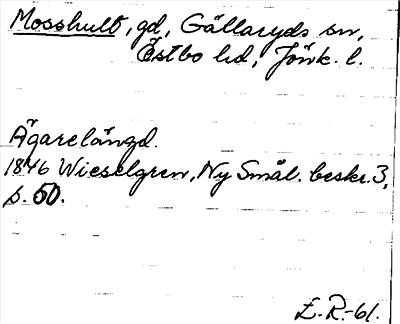 Mosshult, gd, Gällaryds sn,
Östbo hd, Jönk. l.
Ägarelängd.
1846 Wieselgren, Ny Smål. beskr. 3,
s. 50.
E. R.-61.